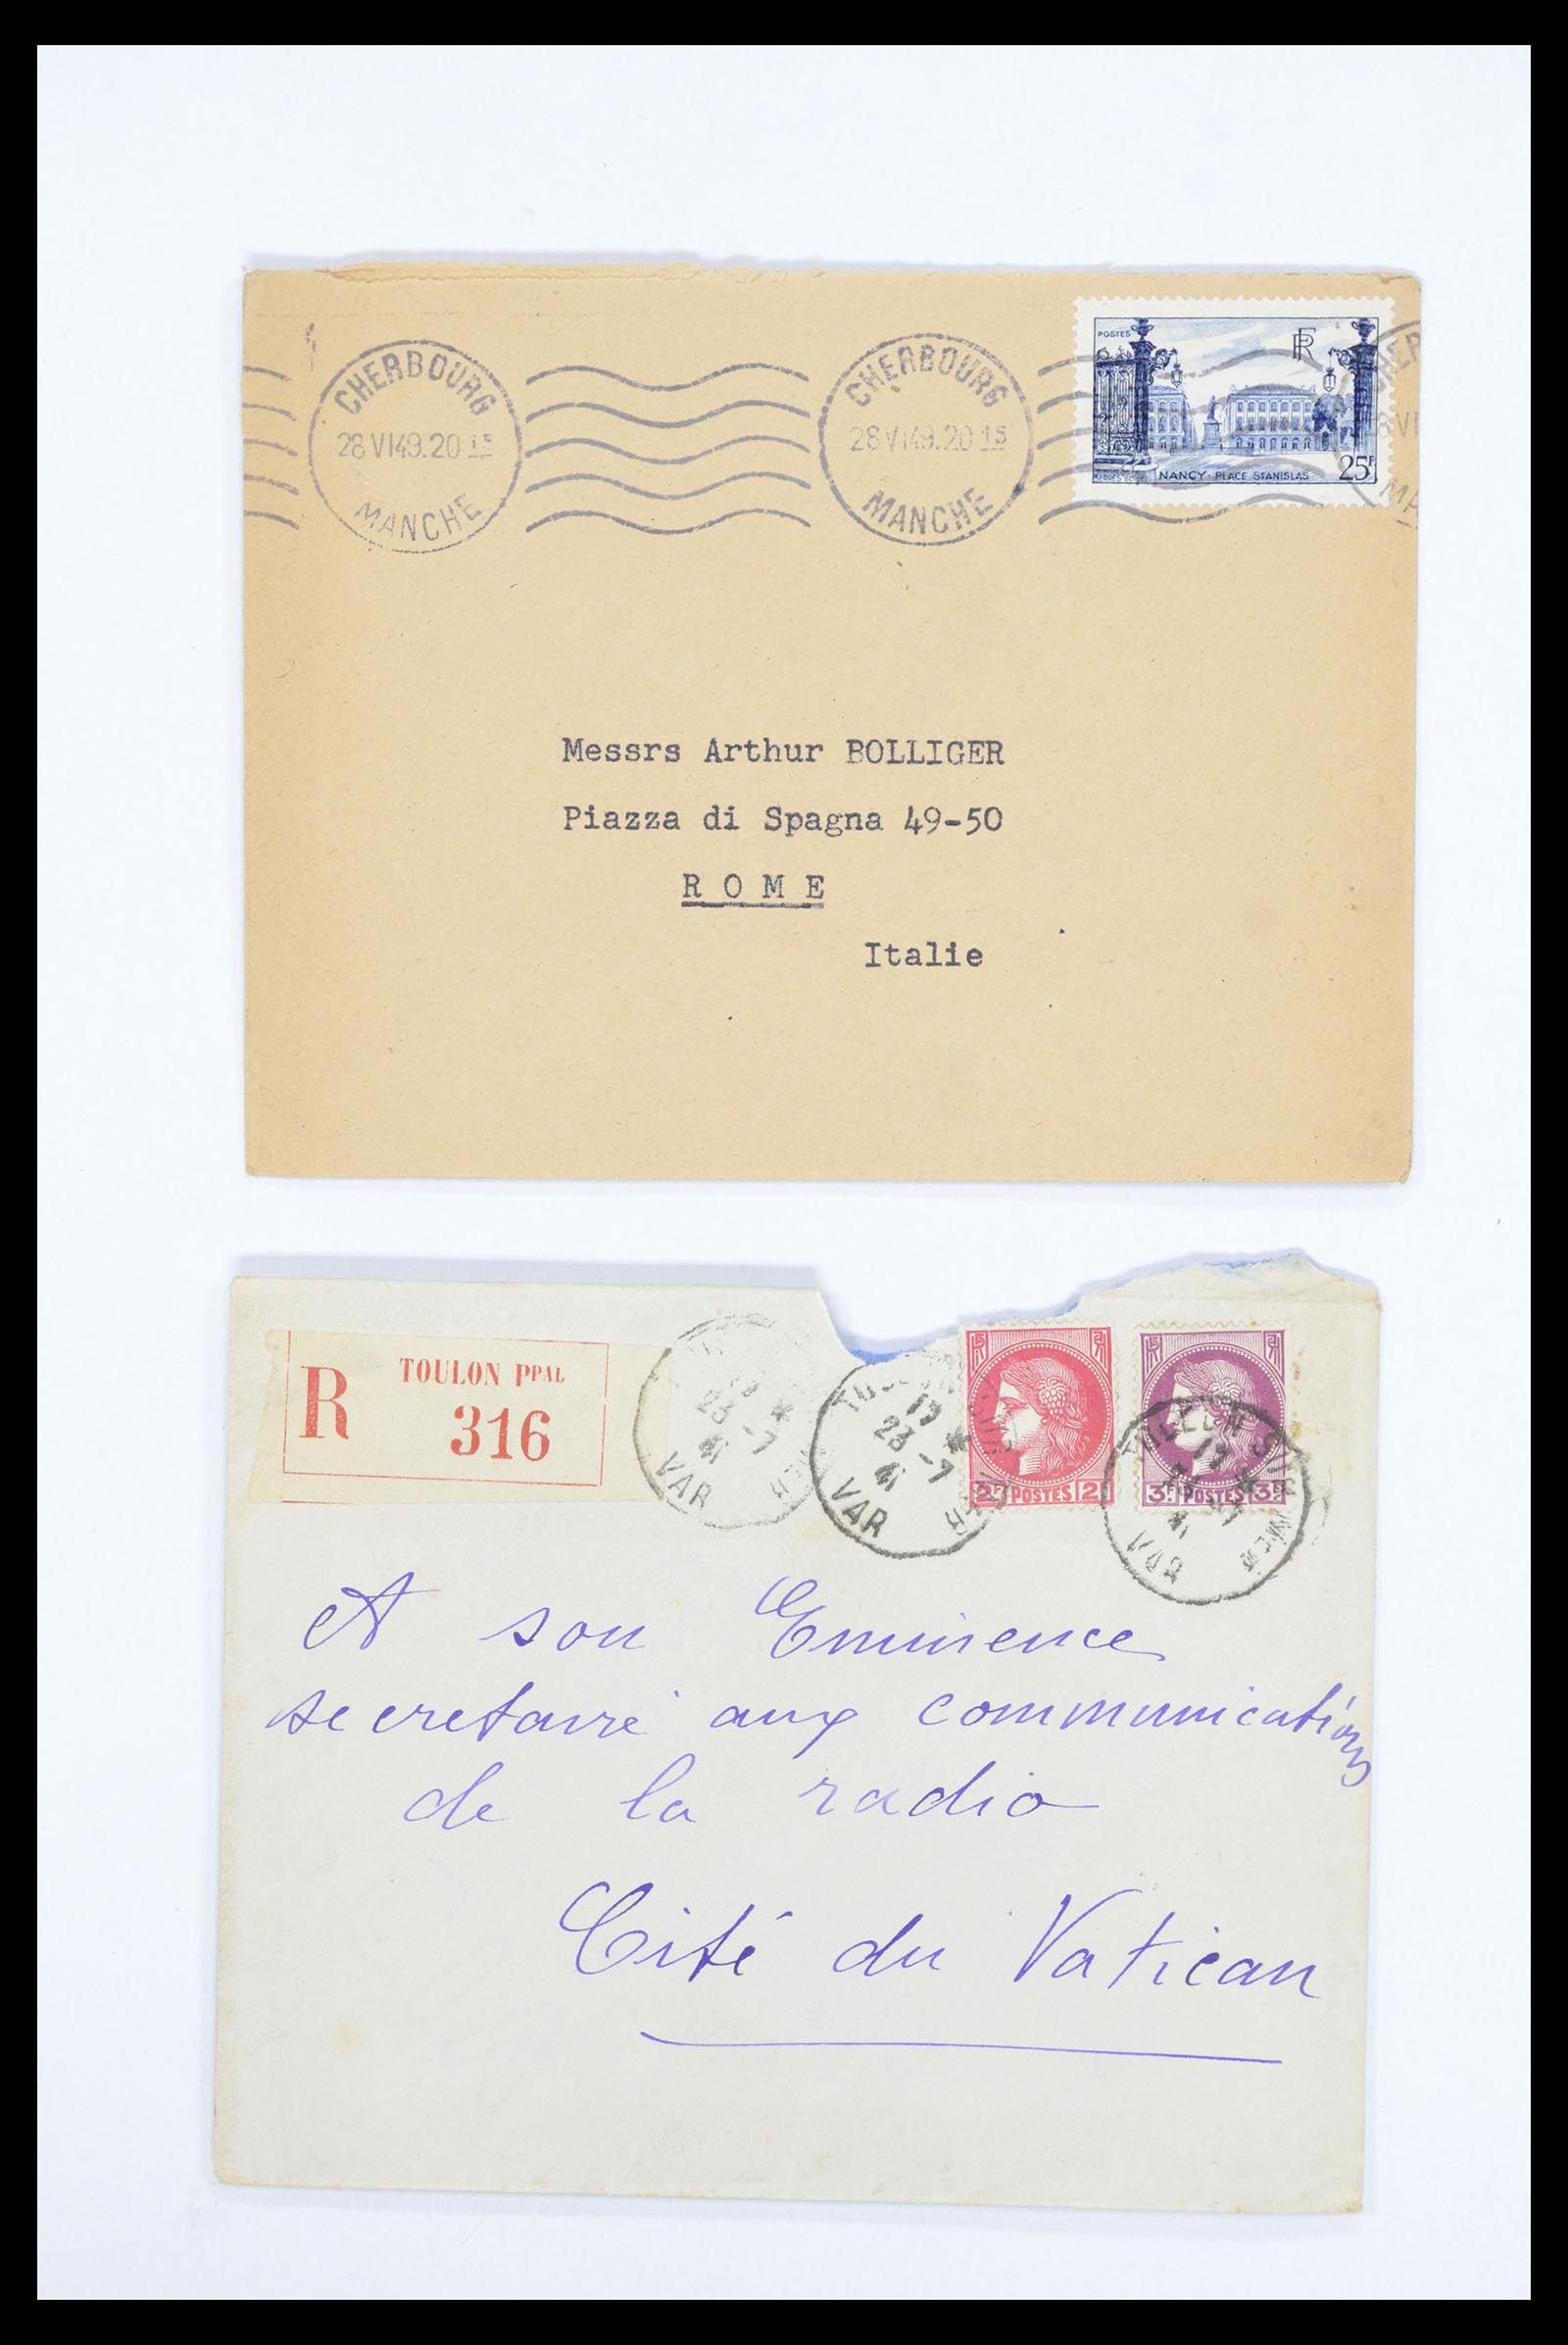 CHERBOURG
28 VI 49.20 15
MANCHE
CHERBOURG
28 VI 49.20 15
MANCHE
POSTES
RF
NANCY-PLACE STANISLAS
25F
Messrs Arthur BOLLIGER
Piazza di Spagna 49-50
R O M E
Italie
R TOULON PPAL
316
19
23 -7
41
VAR
19
23 -7
41
VAR
2F POSTES 2F
3F POSTES 3F
TOULON SUR MER
19
41
VAR
A son Eminence
secretaire aux communications
de la radio
Cité du Vatican